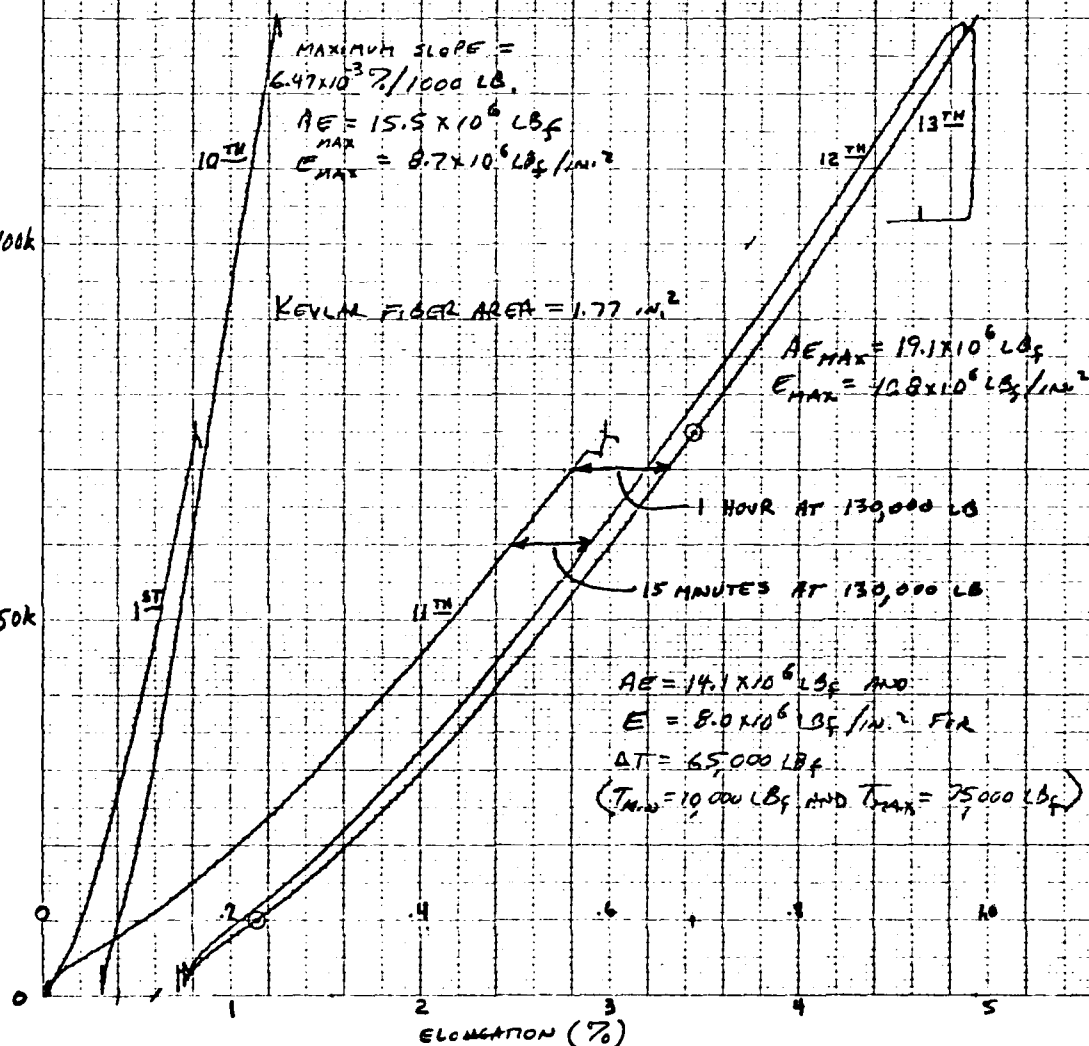 MAXIMUM SLOPE =
6.47x10⁻³ %/1000 LB.
AE MAX = 15.5 x 10⁶ LBf
E MAX = 8.7x10⁶ LBf/IN.²
10TH
12TH
13TH
100k
KEVLAR FIBER AREA = 1.77 IN.²
AE MAX = 19.1x10⁶ LBf
E MAX = 10.8x10⁶ LBf/IN²
1 HOUR AT 130,000 LB
15 MINUTES AT 130,000 LB
1ST
11TH
50k
AE = 14.1 x10⁶ LBf AND
E = 8.0x10⁶ LBf/IN.² FOR
ΔT = 65,000 LBf
(TMIN = 10,000 LBf AND TMAX = 75,000 LBf)
0 .2 .4 .6 .8 1.0
0 1 2 3 4 5
ELONGATION (%)